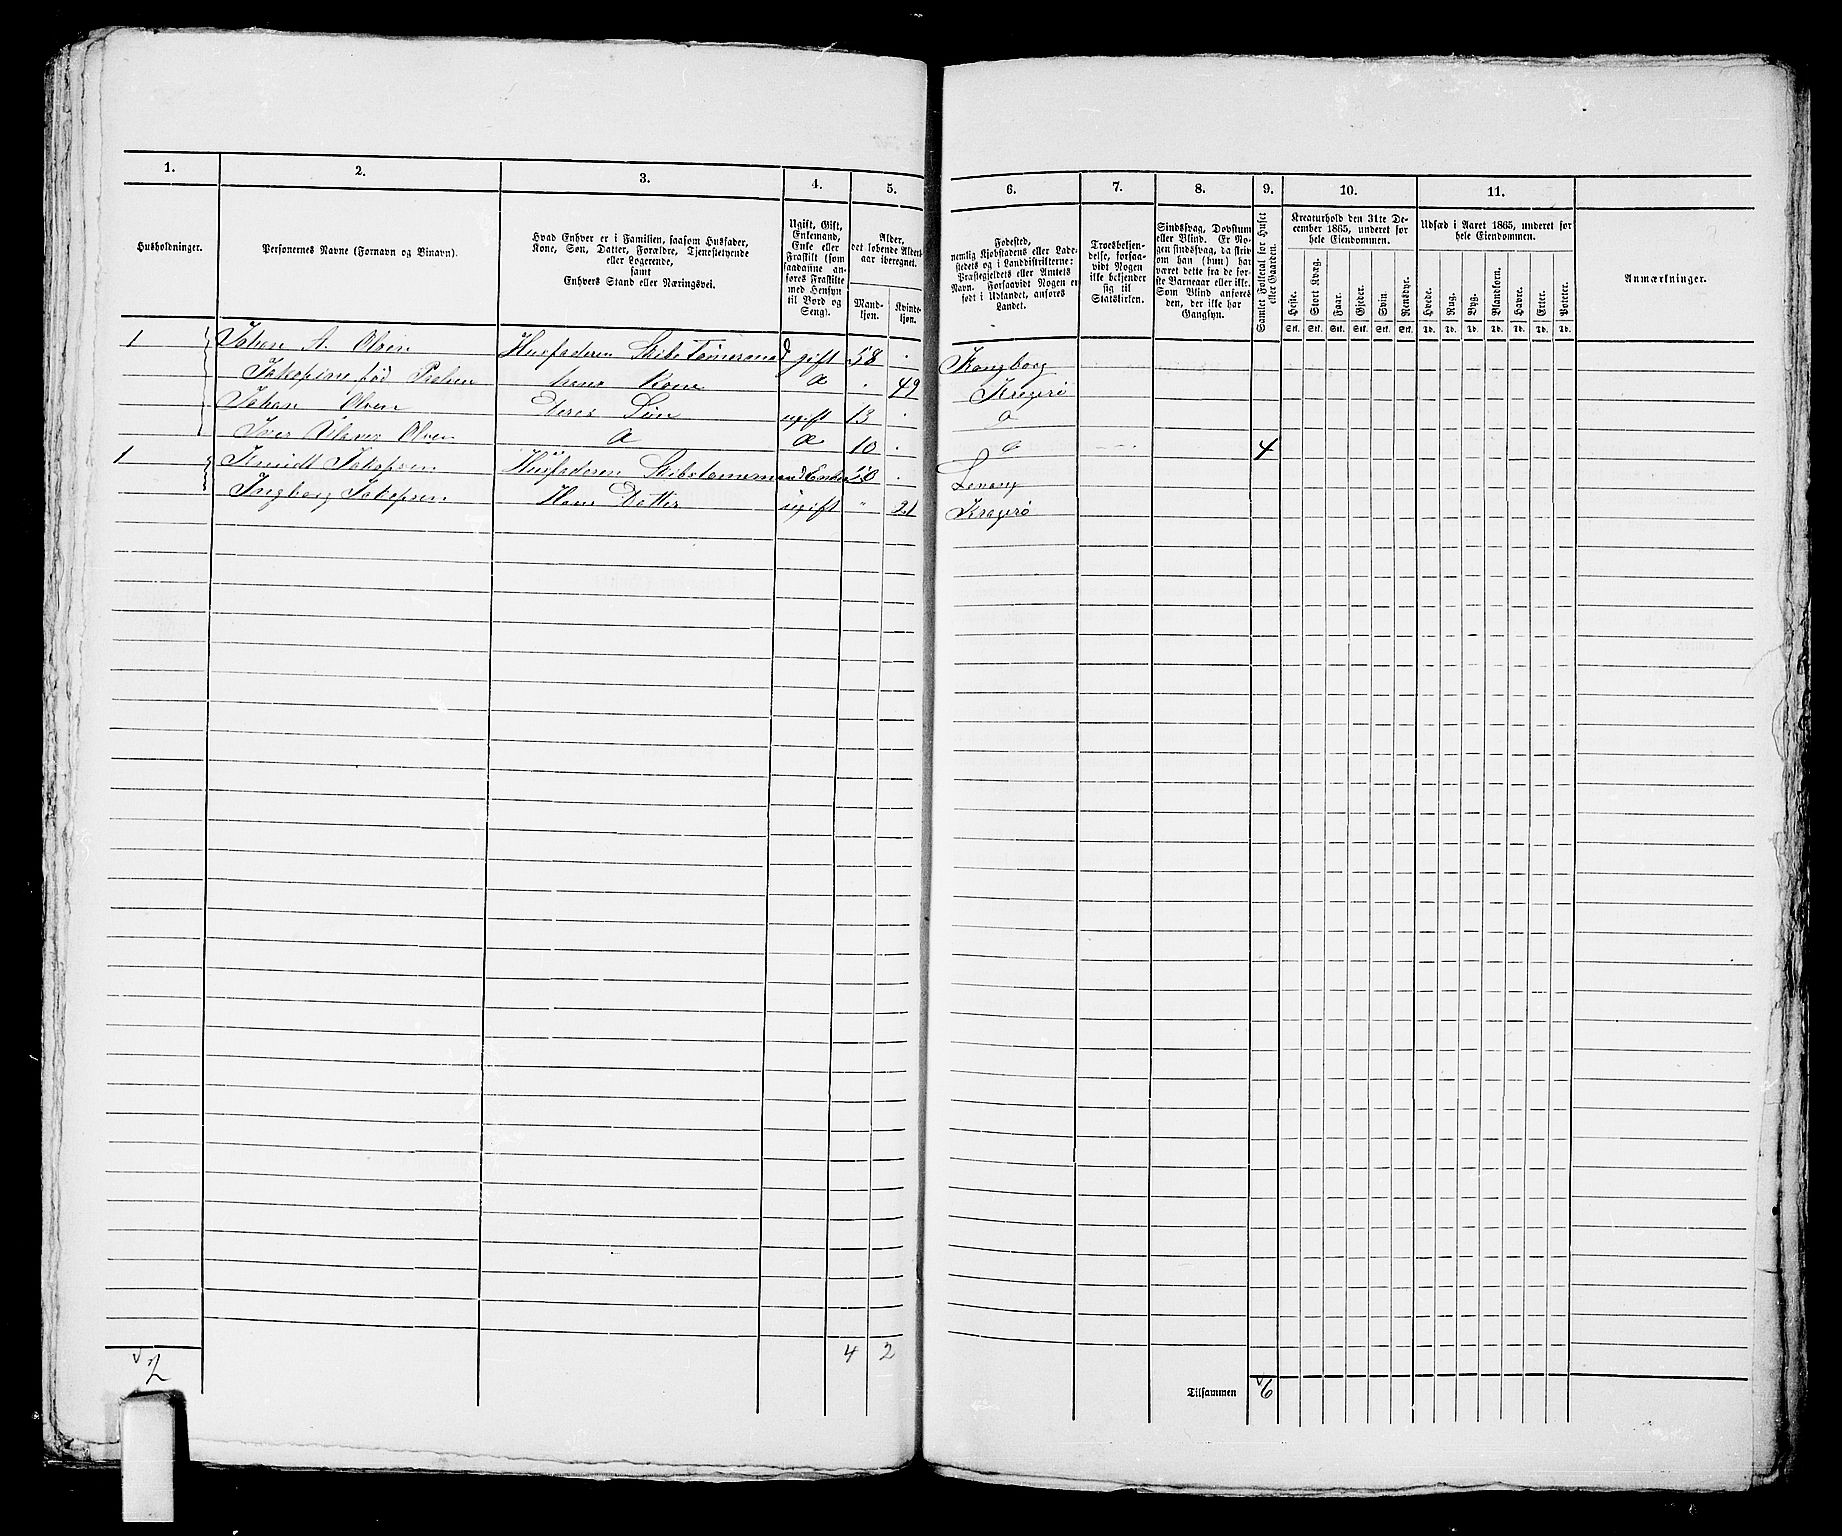 1. 2. 3. 4. 5. 6. 7. 8. 9. 10. 11.
Husholdninger.
Personernes Navne (Fornavn og Binavn).
Hvad Enhver er i Familien, saasom Husfader,
Kone, Søn, Datter, Forældre, Tjenestetyende
eller Logerende,
samt
Enhvers Stand eller Næringsvei.
Ugift, Gift,
Enkemand,
Enke eller
Fraskilt (som
saadanne an-
føres Fraskilte
med Hensyn
til Bord og
Seng).
Alder,
det løbende Alders-
aar iberegnet.
Mand-
kjøn.
Kvinde-
kjøn.
Fødested,
nemlig Kjøbstadens eller Lade-
stedets og i Landdistrikterne:
Præstegjeldets eller Amtets
Navn. Forsaavidt Nogen er
født i Udlandet, anføres
Landet.
Troesbekjen-
delse, forsaa-
vidt Nogen
ikke bekjender
sig til
Statskirken.
Sindssvag, Døvstum
eller Blind. Er No-
gen sindssvag, da skriv
om han (hun) har
været dette fra de før-
ste Barneaar eller ikke.
Som Blind ansøres
den, der ikke har
Gangsyn.
Samlet Folketal for Huset
eller Gaarden.
Kreaturhold den 31te De-
cember 1865, underet for
hele Eiendommen.
Heste. Stort Kvæg. Faar. Gjeder. Svin Rensdyr.
Stk. Stk. Stk. Stk. Stk. Stk.
Udsæd i Aaret 1865, underet for
hele Eiendommen.
Hvede. Rug. Byg. Blandkorn. Havre. Erter. Poteter.
Td. Td. Td. Td. Td. Td. Td.
Anmærkninger.
1 Johan A. Olsen Husfaderen Skibstømmermand gift 58 Kongberg
Jakopine fød hans Kone d 49 Kragerö
Johan Olsen deres Sön ugift 13 d
Iver Olsen d d 10 d 4
1 Knudt Jakopsen Husfaderen Skibstømmermand Enke 50
Ingborg Jakopsen Hans Datter ugift " 21 Kragerö
2 4 2
Tilsammen 6